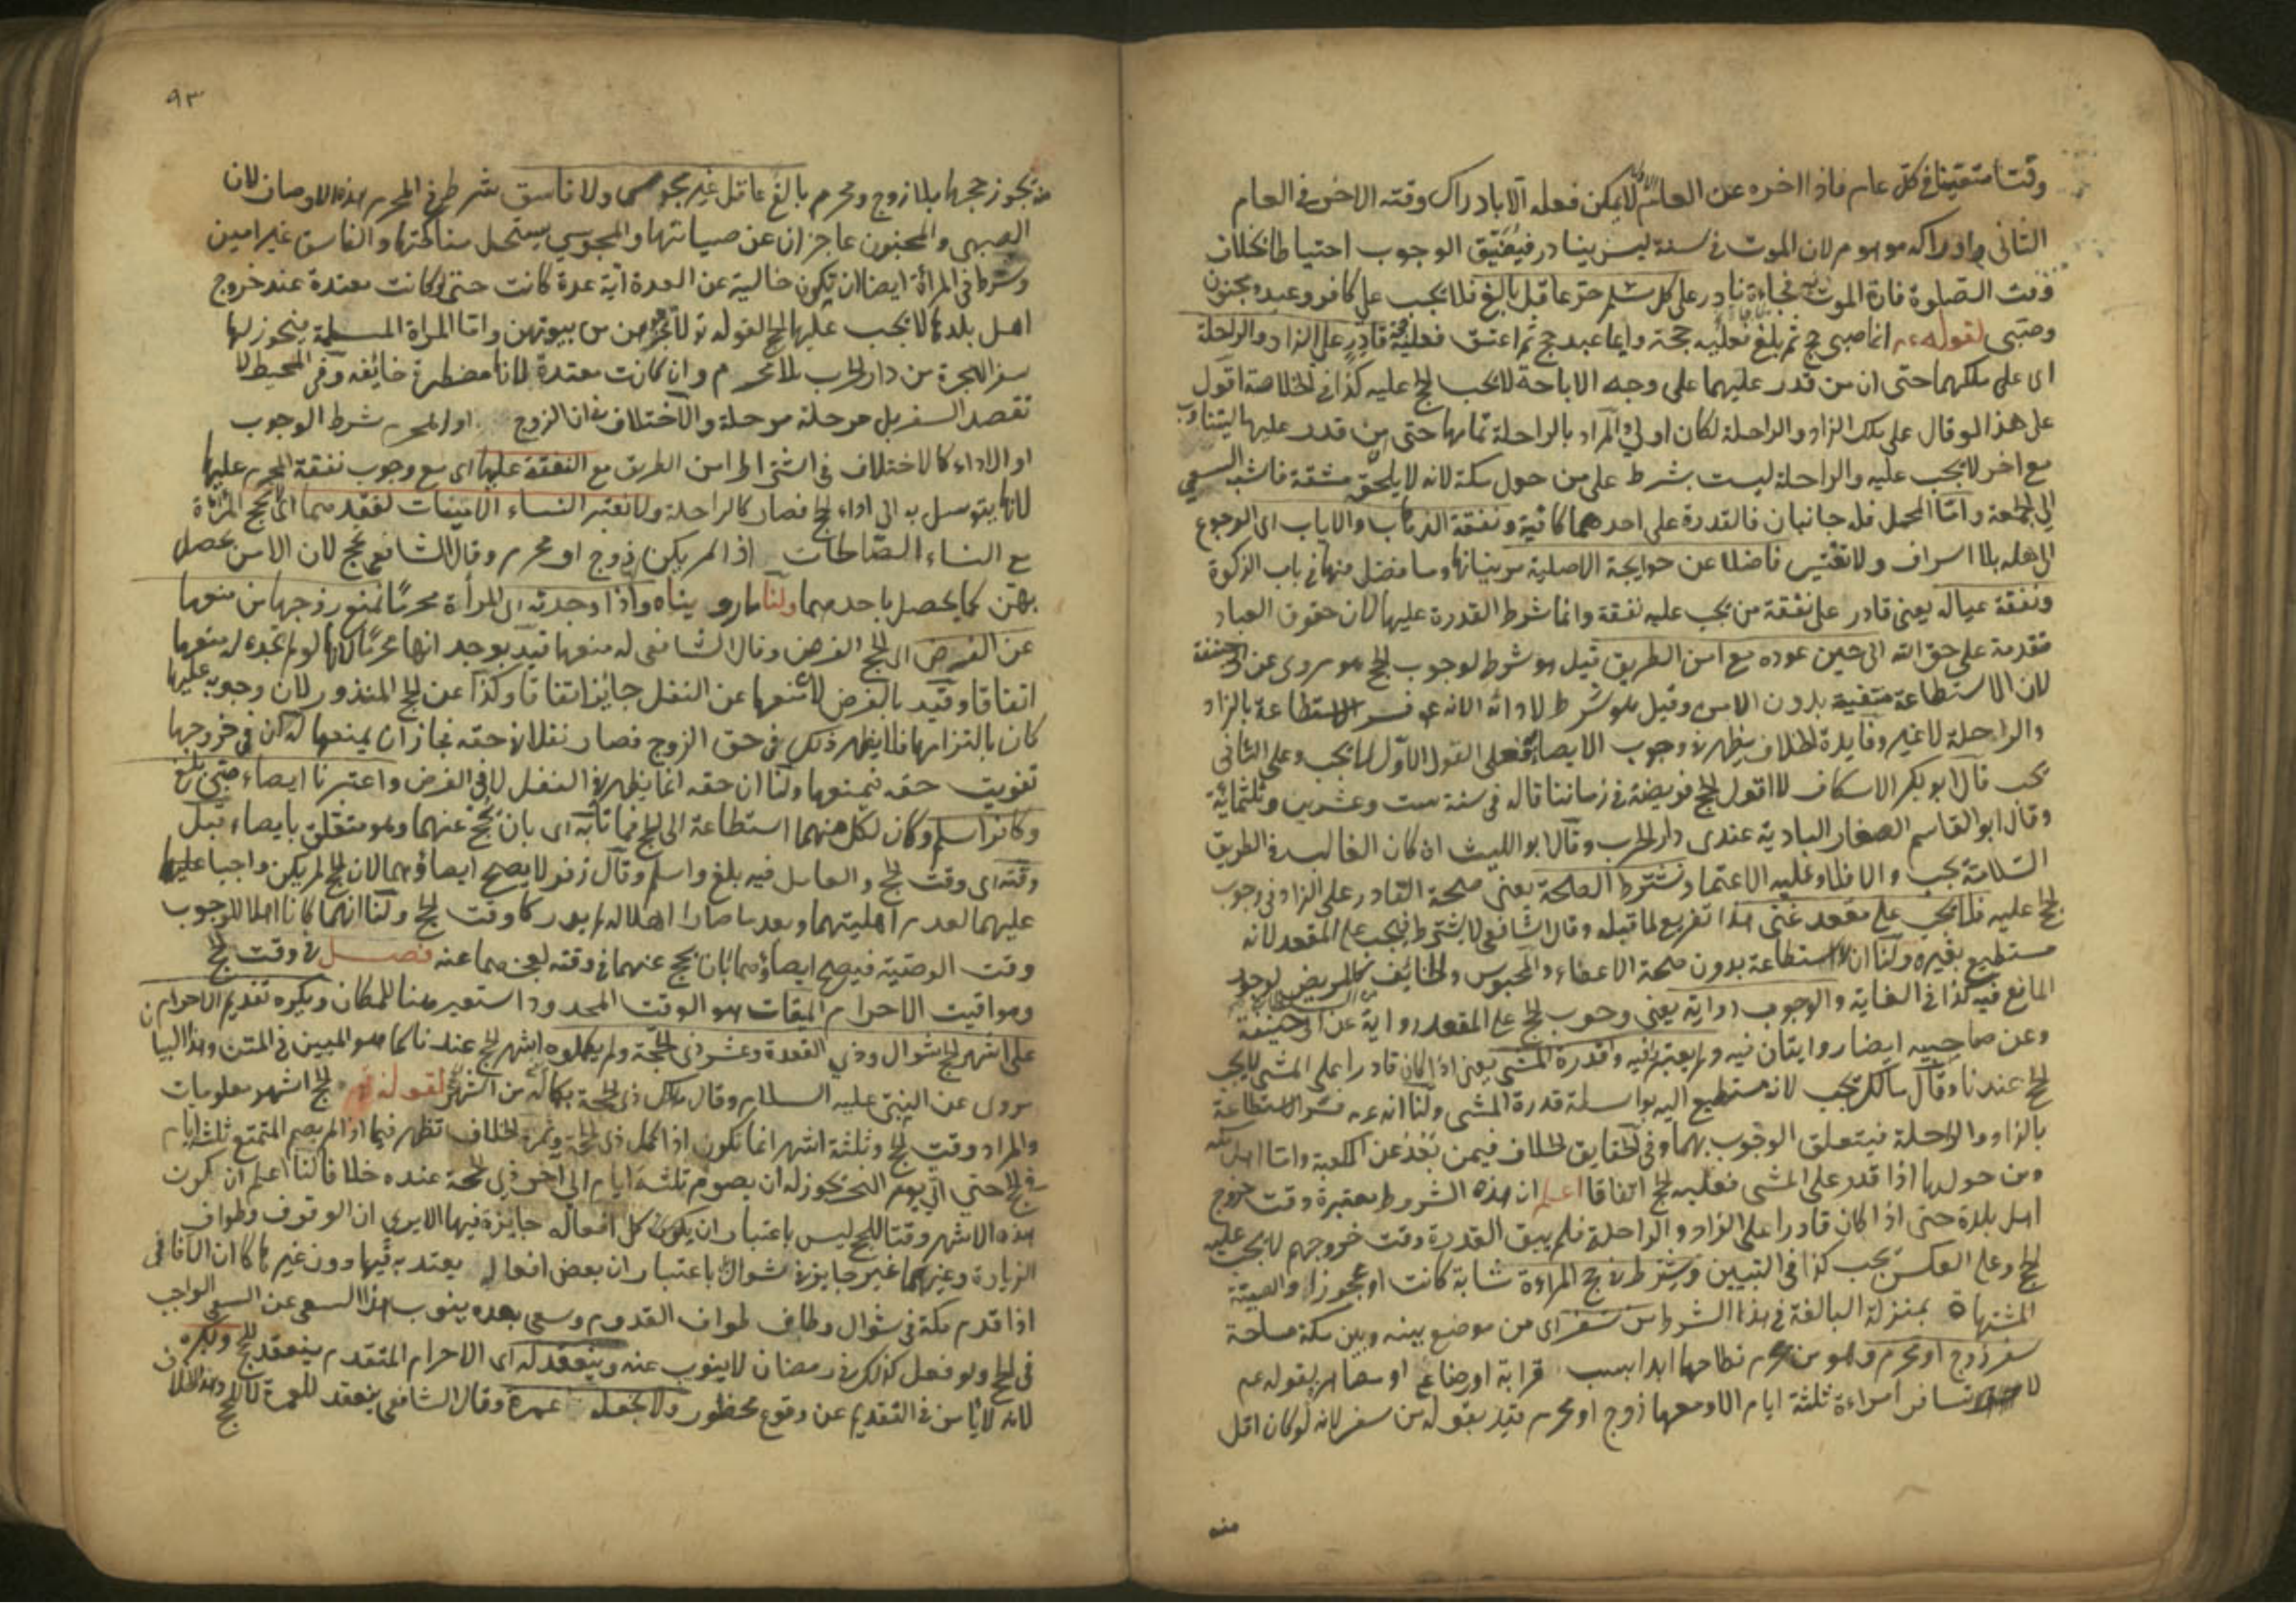 وقتا متعينا في كل عام فاذا اخره عن العام الاول لا يمكن فعله الا بادراك وقته الاخر في العام
الثاني وادراكه موهوم لان الموت في سنة ليس بنادر فيضيق الوجوب احتياطا بخلاف
وقت الصلوة فان الموت فيه فجاءة نادر على كل مسلم حر عاقل بالغ فلا يجب على كافر وعبد ومجنون
وصبي لقوله عم ايما صبي حج ثم بلغ فعليه حجة وايما عبد حج ثم اعتق فعليه حجة قادر على الزاد والراحلة
اى على ملكهما حتى ان من قدر عليهما على وجه الاباحة لا يجب الحج عليه كذا في الخلاصة اقول
على هذا لو قال على ملك الزاد والراحلة لكان اولى والمراد بالراحلة تمامها حتى من قدر عليها ليتناوب
مع اخر لا يجب عليه والراحلة ليست بشرط على من حول مكة لانه لا يلحقه مشقة فاشبه السعي
الى الجمعة واما المحمل فله جانبان فالقدرة على احدهما كافية ونفقة الذهاب والاياب اى الرجوع
الى اهله بلا اسراف ولا تقتير فاضلا عن حوايجه الاصلية مر بيانها وما فضل منها في باب الزكوة
ونفقة عياله يعني قادر على نفقة من يجب عليه نفقة وانما شرط القدرة عليها لان حقوق العباد
مقدمة على حق الله الى حين عوده مع امن الطريق قيل هو شرط لوجوب الحج هو مروى عن ابي حنيفة
لان الاستطاعة منتفية بدون الامن وقيل هو شرط لادائه لانه عم فسر الاستطاعة بالزاد
والراحلة لا غير وفايدة الخلاف يظهر في وجوب الايصاء فعلى القول الاول لا يجب وعلى الثاني
يجب قال ابو بكر الاسكاف لا اقول الحج فريضة في زماننا قاله في سنة ست وعشرين وثلثمائة
وقال ابو القاسم الصفار البادية عندى دار الحرب وقال ابو الليث ان كان الغالب في الطريق
السلامة يجب والا فلا وعليه الاعتماد وتشترط الصحة يعني صحة القادر على الزاد في وجوب
الحج عليه فلا يجب على مقعد غني هذا تفريع لما قبله وقال الشافعي لا يشترط فيجب على المقعد لانه
مستطيع بغيره ولنا ان لا استطاعة بدون صحة الاعضاء والمحبوس والخايف كالمريض لوجود
المانع فيه كذا في الغاية والوجوب رواية يعني وجوب الحج على المقعد رواية عن ابي حنيفة
وعن صاحبيه ايضا روايتان فيه ولم يعتبر فيه قدرة المشي يعني اذا كان قادرا على المشي لا يجب
الحج عندنا وقال مالك يجب لانه مستطيع اليه بواسطة قدرة المشي ولنا انه عم فسر الاستطاعة
بالزاد والراحلة فيتعلق الوجوب بهما وفي الحقايق الخلاف فيمن بعد عن الكعبة واما اهل مكة
ومن حولها اذا قدر على المشي فعليه الحج اتفاقا اعلم ان هذه الشروط معتبرة وقت خروج
اهل بلدة حتى اذا كان قادرا على الزاد والراحلة فلم يبق القدرة وقت خروجهم لا يجب عليه
الحج وعلى العكس يجب كذا في التبيين ويشترط في حج المراءة شابة كانت او عجوزا والصبية
المشتهاة بمنزلة البالغة في هذا الشرط من سفر اى من موضع بينه وبين مكة مساحة
سفر زوج او محرم وهو من يحرم نكاحها ابدا بسبب قرابة او رضاع او مصاهرة لقوله عم
لا تسافر امراءة ثلثة ايام الا ومعها زوج او محرم قيد بقوله من سفر لانه لو كان اقل
منه
٩٣
منه يجوز حجها بلا زوج ومحرم بالغ عاقل غير مجوسي ولا فاسق شرط في المحرم هذه الاوصاف لان
الصبي والمجنون عاجزان عن صيانتها والمجوسي يستحل مناكحتها والفاسق غير امين
وشرط في المرأة ايضا ان تكون خالية عن العدة اية عدة كانت حتى لو كانت معتدة عند خروج
اهل بلدها لا يجب عليها الحج لقوله تع لا تخرجوهن من بيوتهن واما المراة المسلمة يجوز لها
سفر الهجرة من دار الحرب بلا محرم وان كانت معتدة لانها مضطرة خائفة وفي المحيط لا
تقصد السفر بل مرحلة مرحلة والاختلاف في ان الزوج او المحرم شرط الوجوب
او الاداء كالاختلاف في اشتراط امن الطريق مع النفقة عليها اى مع وجوب نفقة المحرم عليها
لانها يتوسل به الى اداء الحج فصار كالراحلة ولا نعتبر النساء الامينات لفقدهما اى لا تحج المراة
مع النساء الصالحات اذا لم يكن زوج او محرم وقال الشافعي تحج لان الامن يحصل
بهن كما يحصل باحدهما ولنا ما رويناه واذا وجدته اى المرأة محرما لم نمنع زوجها من منعها
عن الفرض اى الحج الفرض وقال الشافعي له منعها قيد بوجدانها محرما لانها لو لم تجده له منعها
اتفاقا وقيد بالفرض لان منعها عن النفل جايز اتفاقا وكذا عن الحج المنذور لان وجوبه عليها
كان بالتزامها فلا يظهر ذلك في حق الزوج فصار نفلا في حقه فجاز ان يمنعها له ان في خروجها
تفويت حقه فيمنعها ولنا ان حقه انما يظهر في النفل لا في الفرض واعتبرنا ايصاء صبي بلغ
وكافر اسلم وكان لكل منهما استطاعة الى الحج فماتا به اى بان يحج عنهما وهو متعلق بايصاء قبل
وقته اى وقت الحج والعامل فيه بلغ واسلم وقال زفر لا يصح ايصاؤهما لان الحج لم يكن واجبا عليهما
عليهما لعدم اهليتهما وبعد ما صارا اهلا له لم يدركا وقت الحج ولنا انهما كانا اهلا للوجوب
وقت الوصية فيصح ايصاؤهما بان يحج عنهما في وقته لعجزهما عنه فصل في وقت الحج
ومواقيت الاحرام الميقات هو الوقت المحدود استعير هنا للمكان ويكره تقديم الاحرام
على اشهر الحج شوال وذي القعدة وعشر ذي الحجة ولم يكملوه اشهر الحج عندنا كما هو المبين في المتن وهذا البيان
مروى عن النبي عليه السلام وقال مالك ذي الحجة بكماله من اشهر الحج لقوله تع الحج اشهر معلومات
والمراد وقت الحج وثلثة اشهر انما يكون اذا كمل ذى الحجة وثمرة الخلاف تظهر فيما اذا لم يصم المتمتع ثلثة ايام
في الحج حتى اتى يوم النحر يجوز له ان يصوم ثلثة ايام الى اخر ذي الحجة عنده خلافا لنا اعلم ان كون
هذه الاشهر وقتا للحج ليس باعتبار ان يكون كل افعاله جايزة فيها الا يرى ان الوقوف وطواف
الزيارة وغيرهما غير جايز في شوال بل باعتبار ان بعض افعاله يعتد به فيها دون غيرها كما ان الافاقي
اذا قدم مكة في شوال وطاف طواف القدوم وسعى بعده ينوب هذا السعي عن السعي الواجب
في الحج ولو فعل كذلك في رمضان لا ينوب عنه وينعقد له اى الاحرام المتقدم ينعقد للحج ويكره
لانه لا يامن في التقديم عن وقوع محظور ولا نجعله عمرة وقال الشافعي ينعقد للعمرة لا للحج وهذا الخلاف